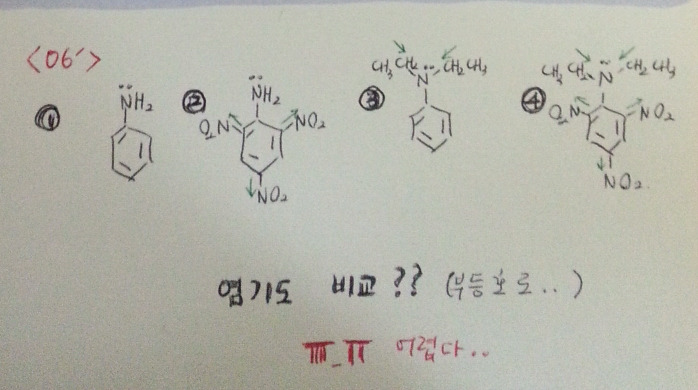 <06'>
① NH₂ ② NH₂ O₂N NO₂ NO₂ ③ CH₃ CH₂ N CH₂CH₃ ④ CH₃ CH₂ N CH₂ CH₃ O₂N NO₂ NO₂
염기도 비교 ?? (부등호로..)
ㅠ_ㅠ 어렵다..